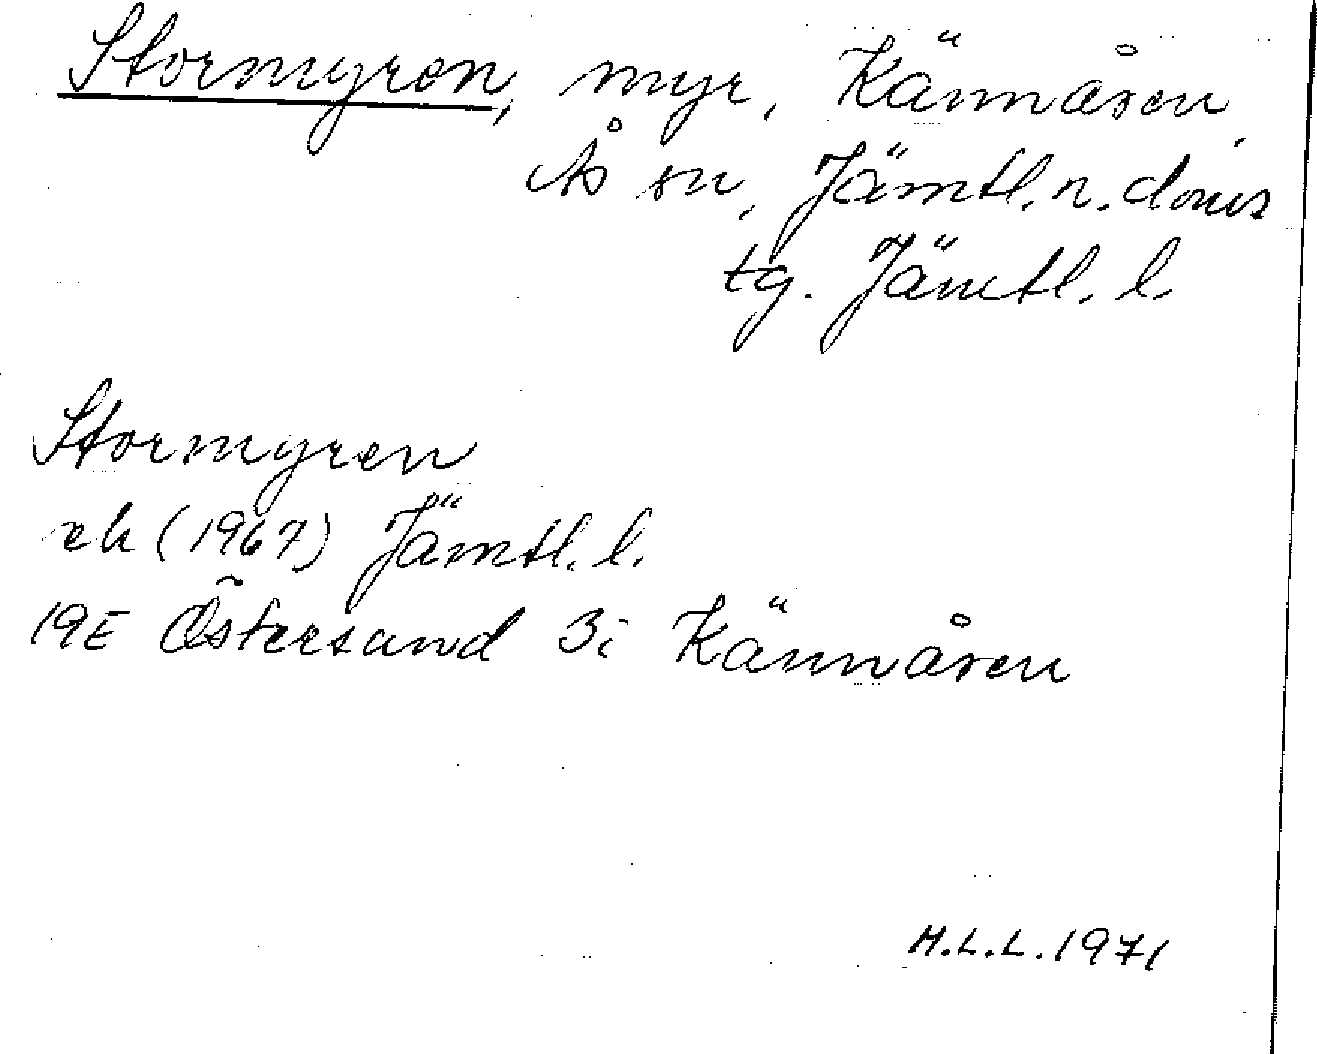 Stormyren, myr, Kännåsen,
Ås sn, Jämtl. n. doms
tg. Jämtl. l.
Stormyren
ek (1967) Jämtl. l.
19E Östersund 3i Kännåsen
H.L.L. 1971